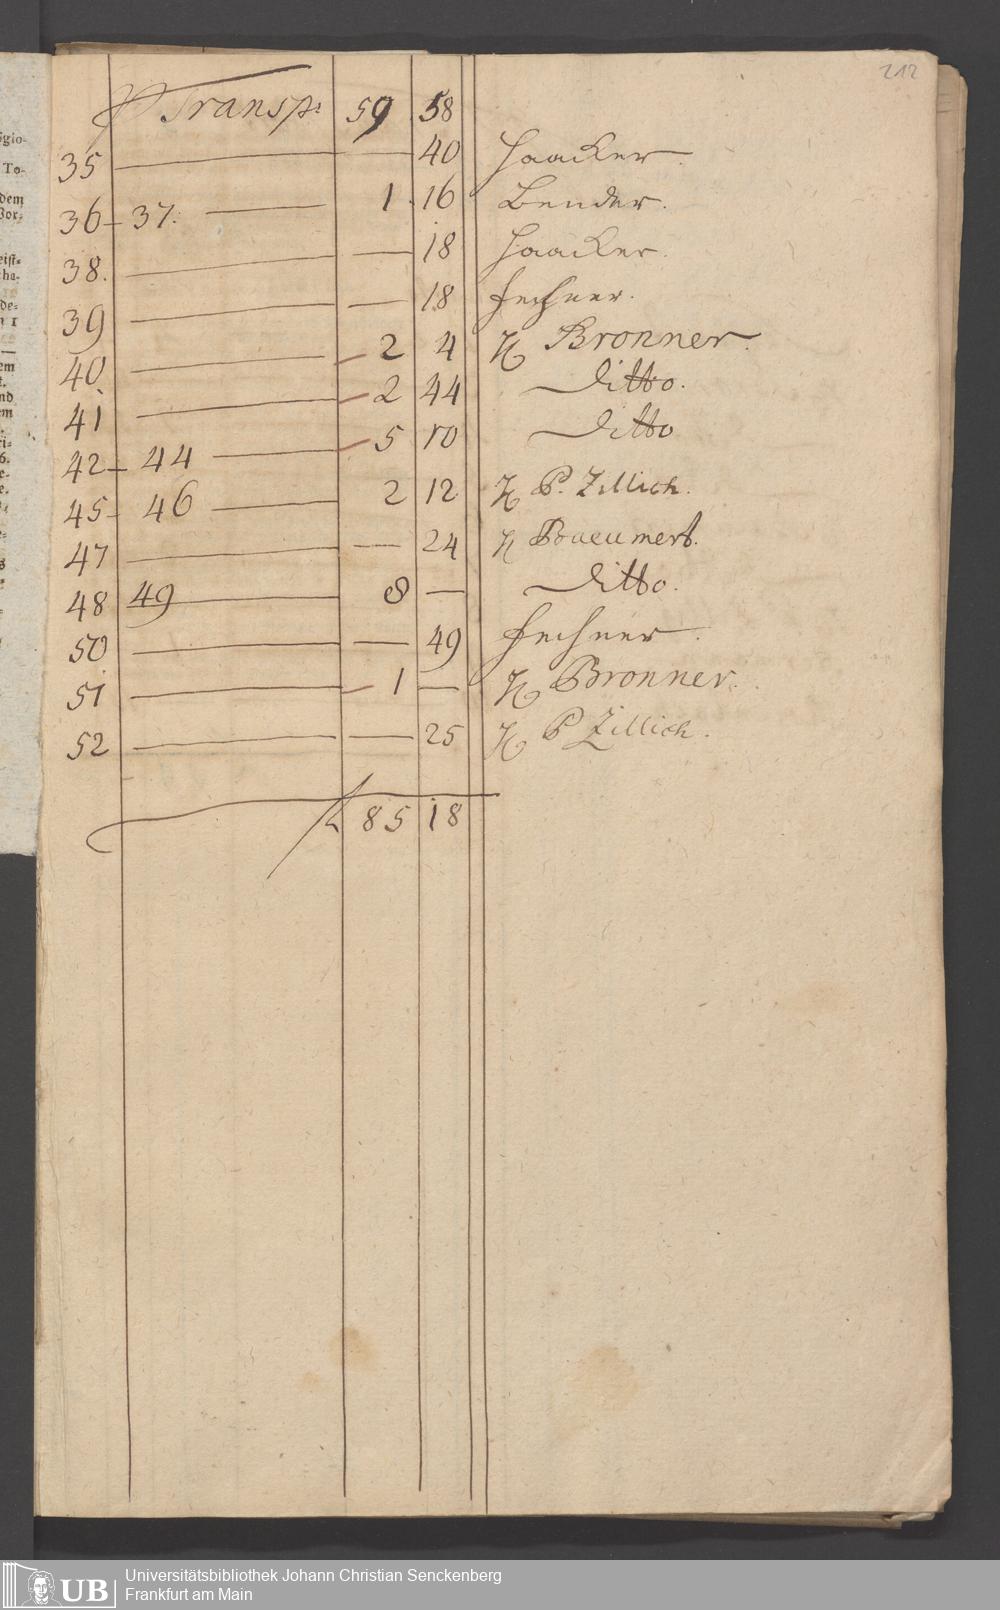 212
Transp: 59 58
35 — — 40 Haacker.
36 - 37. — 1. 16 Bender.
38. — — 18 Haacker.
39 — — 18 Fechner.
40 — 2 4 H Bronner.
41 — 2 44 Ditto.
42 - 44 — 5 10 Ditto
45 - 46 — 2 12 H P. Zillich.
47 — — 24 H Baeumert.
48 49 — 8 — Ditto.
50 — — 49 Fechner.
51 — 1 — H Bronner.
52 — — 25 H P Zillich.
85 18
UB Universitätsbibliothek Johann Christian Senckenberg
Frankfurt am Main